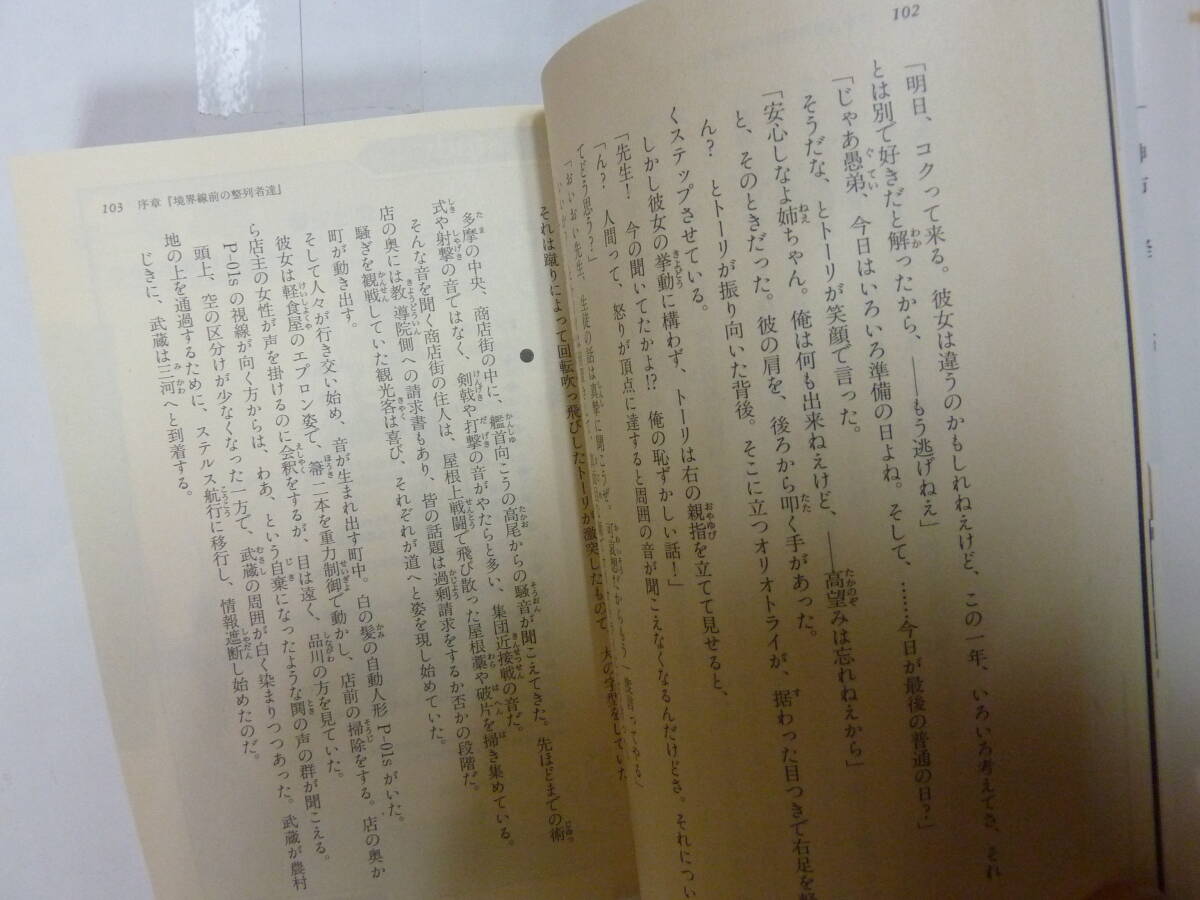 102
「明日、コクって来る。彼女は違うのかもしれねえけど、この一年、いろいろ考えてさ、それ
とは別で好きだと解ったから、――もう逃げねえ」
「じゃあ愚弟、今日はいろいろ準備の日よね。そして、……今日が最後の普通の日？」
そうだな、とトーリが笑顔で言った。
「安心しなよ姉ちゃん。俺は何も出来ねえけど、――高望みは忘れねえから」
と、そのときだった。彼の肩を、後ろから叩く手があった。
ん？　とトーリが振り向いた背後。そこに立つオリオトライが、据わった目つきで右足を軽
くステップさせている。
しかし彼女の挙動に構わず、トーリは右の親指を立てて見せると、
「先生！　今の聞いてたかよ!?　俺の恥ずかしい話！」
「ん？　人間って、怒りが頂点に達すると周囲の音が聞こえなくなるんだけどさ。それについ
てどう思う？」
「おいおい先生、生徒の話は真摯に聞こうぜ。
それは蹴りによって回転吹っ飛びしたトーリが激突したもので、大の字型をしていた
103　序章『境界線前の整列者達』
●
多摩の中央、商店街の中に、艦首向こうの高尾からの騒音が聞こえてきた。先ほどまでの術
式や射撃の音ではなく、剣戟や打撃の音がやたらと多い、集団近接戦の音だ。
そんな音を聞く商店街の住人は、屋根上戦闘で飛び散った屋根藁や破片を掃き集めている。
店の奥には教導院側への請求書もあり、皆の話題は過剰請求をするか否かの段階だ。
騒ぎを観戦していた観光客は喜び、それぞれが道へと姿を現し始めていた。
町が動き出す。
そして人々が行き交い始め、音が生まれ出す町中。白の髪の自動人形P-01sがいた。
彼女は軽食屋のエプロン姿で、箒二本を重力制御で動かし、店前の掃除をする。店の奥か
ら店主の女性が声を掛けるのに会釈をするが、目は遠く、品川の方を見ていた。
P-01sの視線が向く方からは、わあ、という自棄になったような鬨の声の群が聞こえる。
頭上、空の区分けが少なくなった一方で、武蔵の周囲が白く染まりつつあった。武蔵が農村
地の上を通過するために、ステルス航行に移行し、情報遮断し始めたのだ。
じきに、武蔵は三河へと到着する。